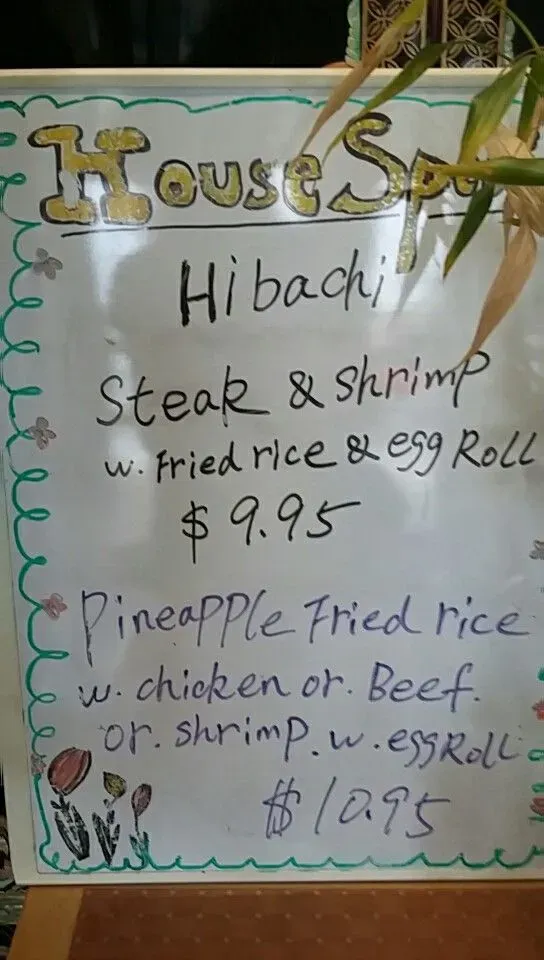 House Sp
Hibachi
Steak & Shrimp
w. Fried rice & egg Roll
$ 9.95
Pineapple Fried rice
w. chicken or. Beef.
or. shrimp. w. egg Roll
$10.95